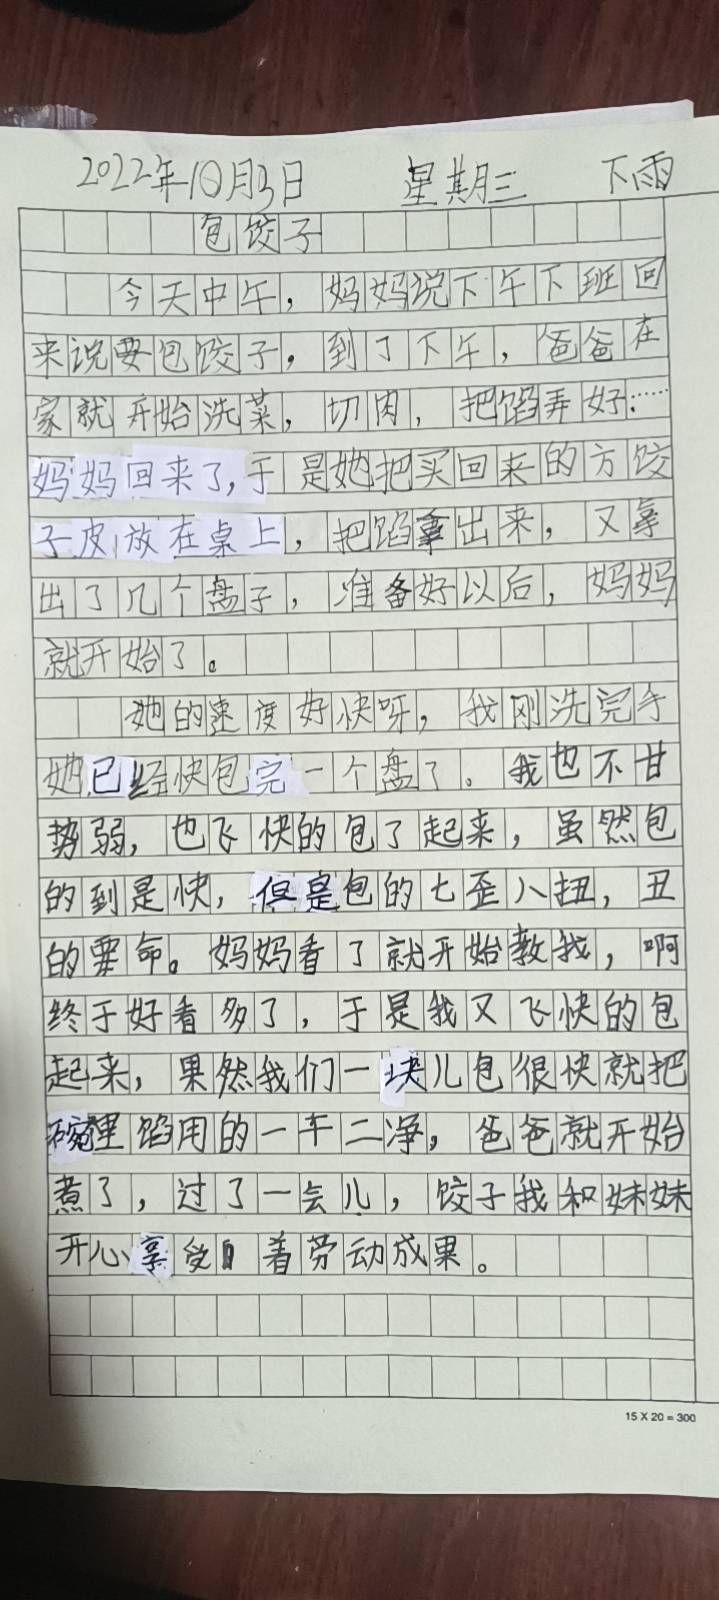 2022年10月3日 星期三 下雨
包饺子
今天中午，妈妈说下午下班回
来说要包饺子，到了下午，爸爸在
家就开始洗菜，切肉，把馅弄好……
妈妈回来了,于是她把买回来的方饺
子皮放在桌上，把馅拿出来，又拿
出了几个盘子，准备好以后，妈妈
就开始了。
她的速度好快呀，我刚洗完手
她已经快包完一个盘了。我也不甘
势弱，也飞快的包了起来，虽然包
的到是快，但是包的七歪八扭，丑
的要命。妈妈看了就开始教我，啊
终于好看多了，于是我又飞快的包
起来，果然我们一块儿包很快就把
碗里馅用的一干二净，爸爸就开始
煮了，过了一会儿，饺子我和妹妹
开心享受着劳动成果。
15 X 20 = 300